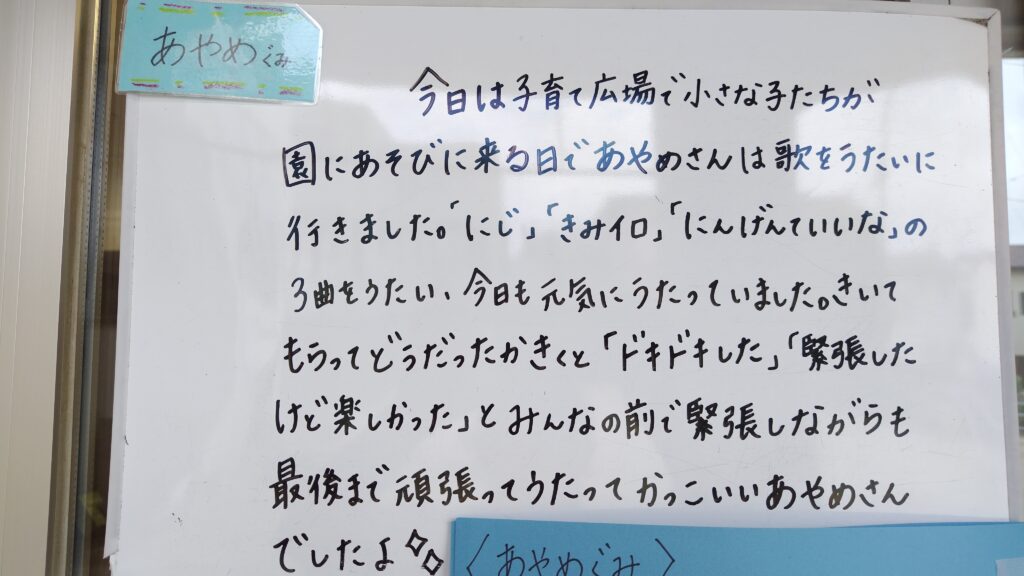 あやめぐみ
今日は子育て広場で小さな子たちが
園にあそびに来る日であやめさんは歌をうたいに
行きました。「にじ」「きみイロ」「にんげんていいな」の
3曲をうたい、今日も元気にうたっていました。きいて
もらってどうだったかきくと「ドキドキした」「緊張した
けど楽しかった」とみんなの前で緊張しながらも
最後まで頑張ってうたってかっこいいあやめさん
でしたよ
〈あやめぐみ〉